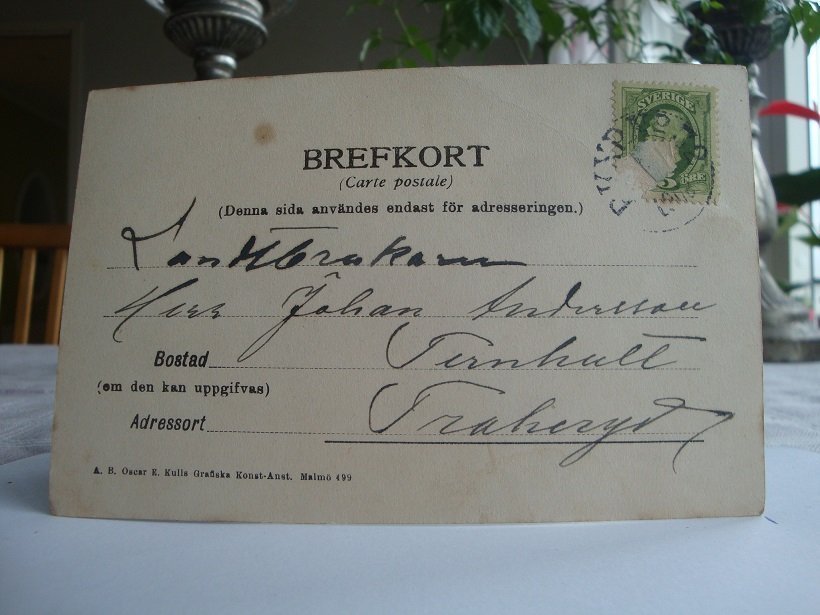 SVERIGE
5 ÖRE
BREFKORT
(Carte postale)
(Denna sida användes endast för adresseringen.)
Landtbrukaren
Herr Johan Andersson
Bostad Ternhult
(om den kan uppgifvas)
Adressort Traheryd
A. B. Oscar E. Kulls Grafiska Konst-Anst. Malmö 499